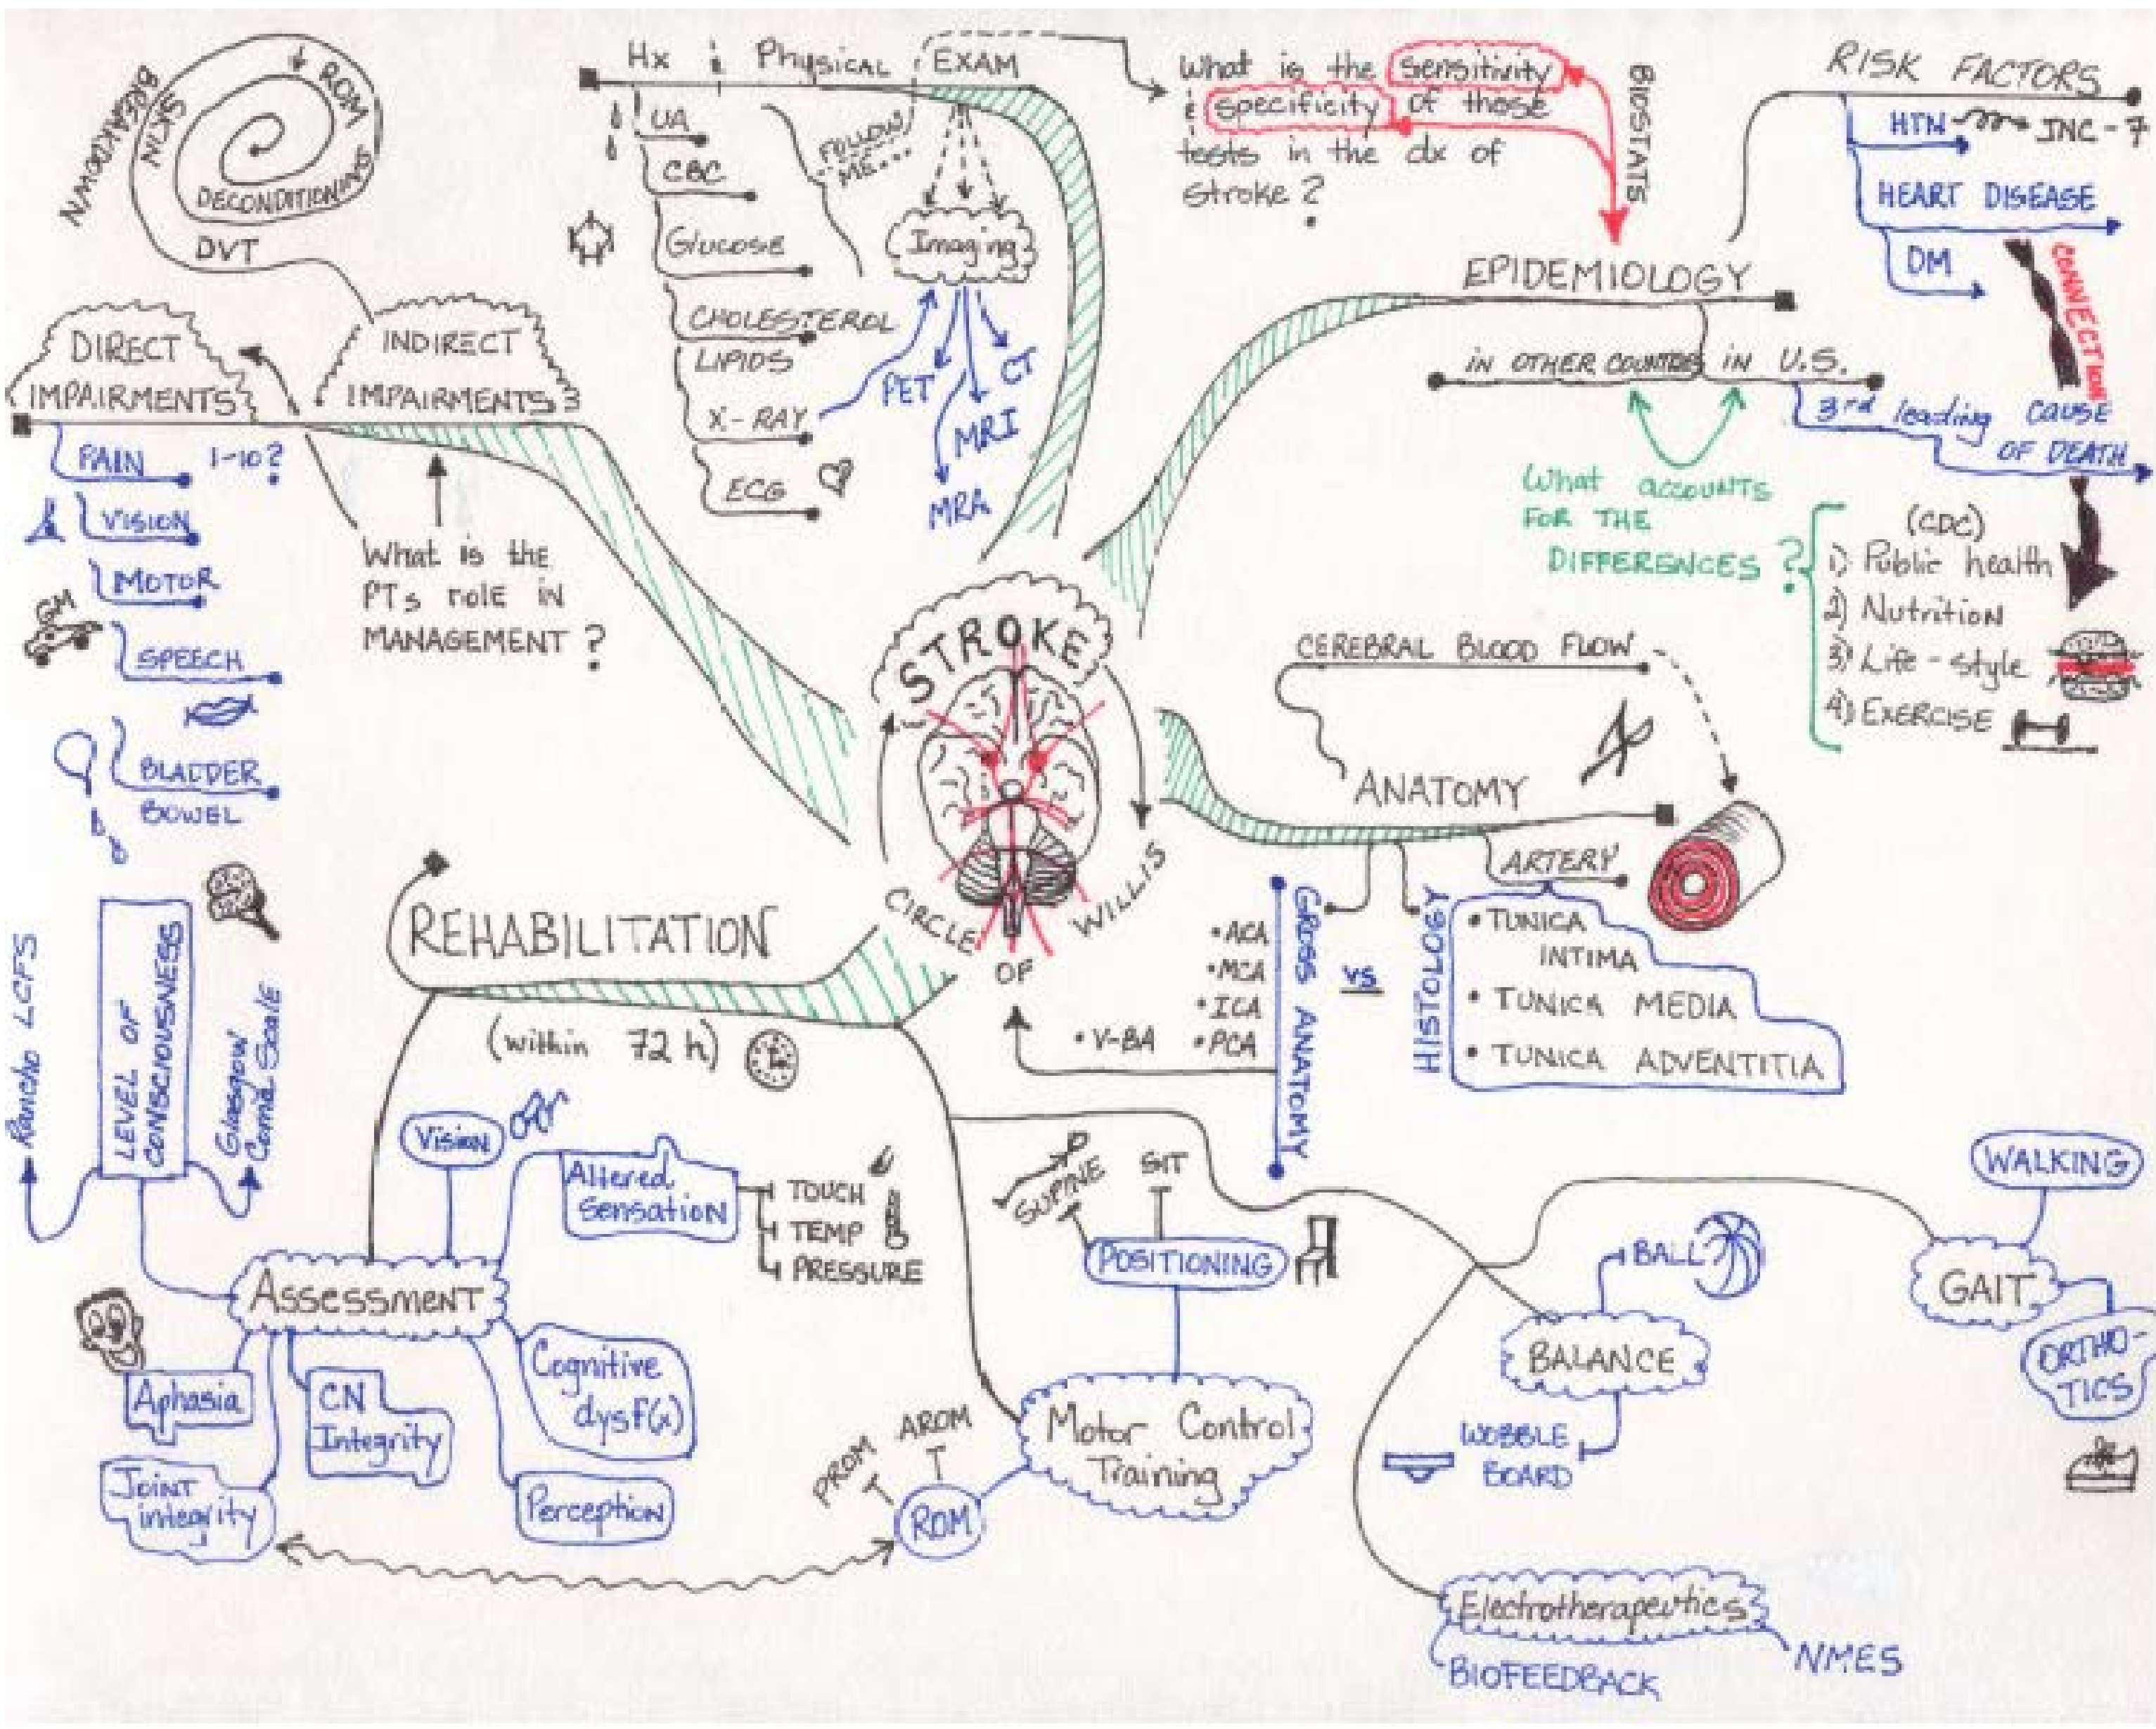 BREAKDOWN
SKIN
↓ ROM
DECONDITIONING
DVT
Hx Physical EXAM
UA
CBC
Glucose
CHOLESTEROL
LIPIDS
X-RAY
ECG
FOLLOW
ME
Imaging
PET
CT
MRI
MRA
What is the sensitivity
& specificity of those
tests in the dx of
stroke?
BIOSTATS
RISK FACTORS
HTN JNC-7
HEART DISEASE
DM
CONNECTION
EPIDEMIOLOGY
IN OTHER COUNTRIES IN U.S.
3rd leading CAUSE
OF DEATH
What ACCOUNTS
FOR THE
DIFFERENCES?
(CDC)
1) Public health
2) Nutrition
3) Life-style
4) EXERCISE
DIRECT
IMPAIRMENTS
INDIRECT
IMPAIRMENTS
PAIN 1-10?
VISION
MOTOR
GM
SPEECH
BLADDER
BOWEL
What is the
PTs role in
MANAGEMENT?
STROKE
CIRCLE
OF
WILLIS
CEREBRAL BLOOD FLOW
ANATOMY
ARTERY
GROSS ANATOMY
vs
HISTOLOGY
• ACA
• MCA
• ICA
• V-BA • PCA
• TUNICA
INTIMA
• TUNICA MEDIA
• TUNICA ADVENTITIA
REHABILITATION
(within 72 h)
Rancho LCFS
LEVEL OF
CONSCIOUSNESS
Glasgow
Coma Scale
Vision
Altered
Sensation
TOUCH
TEMP
PRESSURE
Assessment
Aphasia
CN
Integrity
Cognitive
dysf(x)
Joint
integrity
Perception
SUPINE
SIT
POSITIONING
Motor Control
Training
PROM
AROM
ROM
BALL
BALANCE
WOBBLE
BOARD
WALKING
GAIT
ORTHO-
TICS
Electrotherapeutics
BIOFEEDBACK
NMES